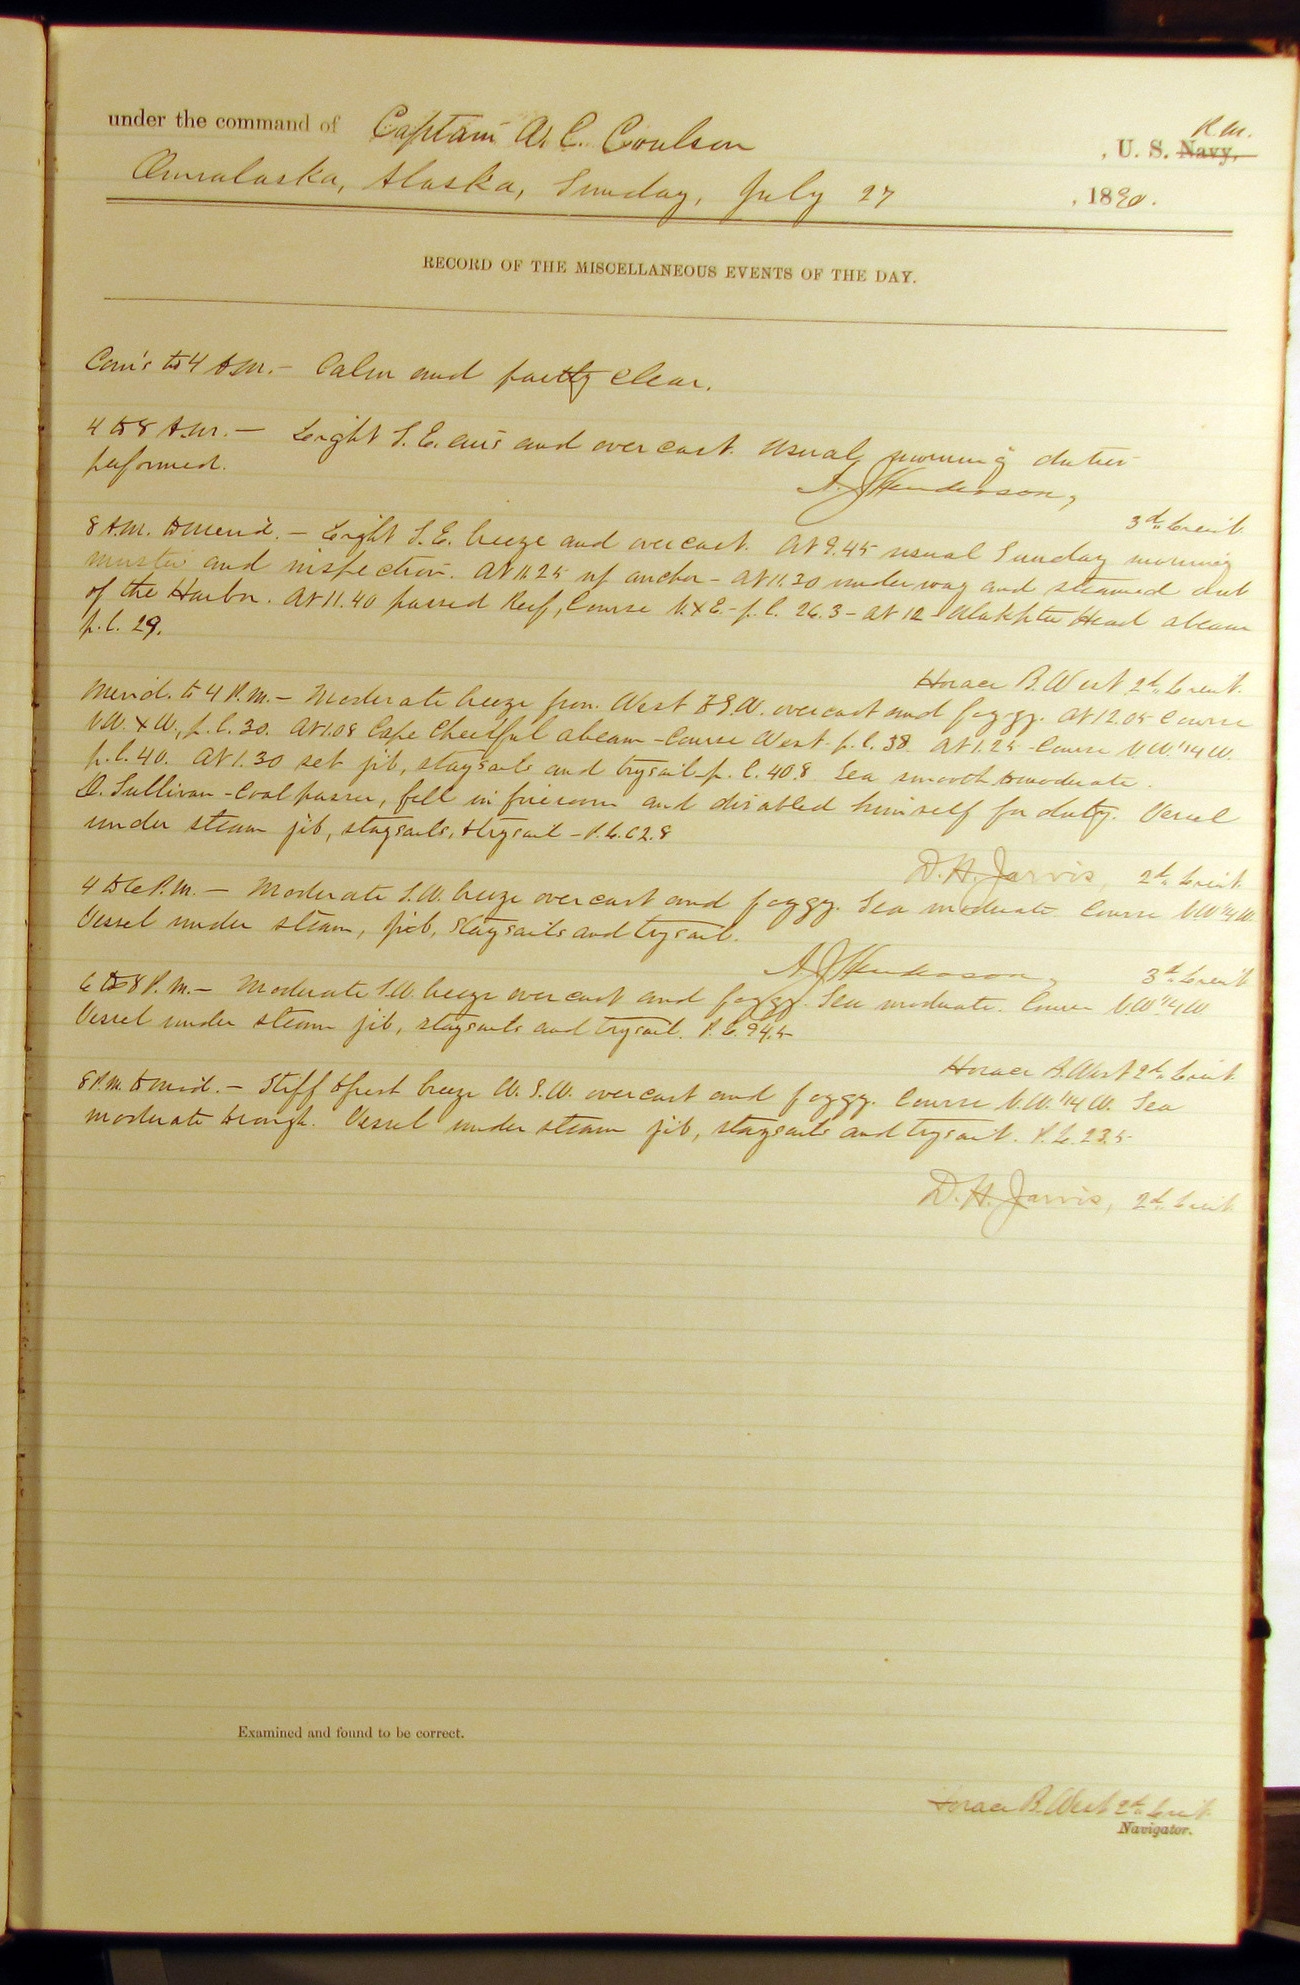 under the command of Captain W. C. Coulson , U. S. Navy, R.M.
Ounalaska, Alaska, Sunday, July 27 , 1890.
RECORD OF THE MISCELLANEOUS EVENTS OF THE DAY.
Com's to 4 A.M. – Calm and partly clear.
4 to 8 A.M. – Light S.E. airs and overcast. Usual morning duties
performed.
A. J. Henderson,
3d Lieut.
8 A.M. to merid. – Light S.E. breeze and overcast. At 9.45 usual Sunday morning
muster and inspection. At 11.25 up anchor – At 11.30 under way and steamed out
of the Harbor. At 11.40 passed Reef, Course N.xE. – p. l. 26.3 – at 12 – Ulakhta Head abeam
p. l. 29.
Horace B. West 2d Lieut.
Merid. to 4 P.M. – Moderate breeze from West to S.W. overcast and foggy. At 12.05 Course
N.W. x W., p. l. 30. At 1.08 Cape Cheerful abeam – Course West. p. l. 38. At 1.25 – Course N.W. 1/4 W.
p. l. 40. At 1.30 set jib, staysails and trysail. p. l. 40.8 Sea smooth to moderate.
D. Sullivan – Coal passer, fell in fireroom and disabled himself for duty. Vessel
under steam jib, staysails, & trysail – P. L. 62.8
D. H. Jarvis, 2d Lieut.
4 to 6 P.M. – Moderate S.W. breeze overcast and foggy. Sea moderate Course N.W 1/4 W.
Vessel under steam, jib, staysails and trysail.
A. J. Henderson, 3d Lieut
6 to 8 P.M. – Moderate S.W. breeze overcast and foggy. Sea moderate. Course N.W. 1/4 W
Vessel under steam jib, staysails and trysail. P. L. 94.5
Horace B. West 2d Lieut.
8 P.M. to mid. – Stiff to fresh breeze W.S.W. overcast and foggy. Course N.W. 1/4 W. Sea
moderate to rough. Vessel under steam jib, staysails and trysail. P. L. 23.5
D. H. Jarvis, 2d Lieut.
Examined and found to be correct.
Horace B. West 2d Lieut.
Navigator.